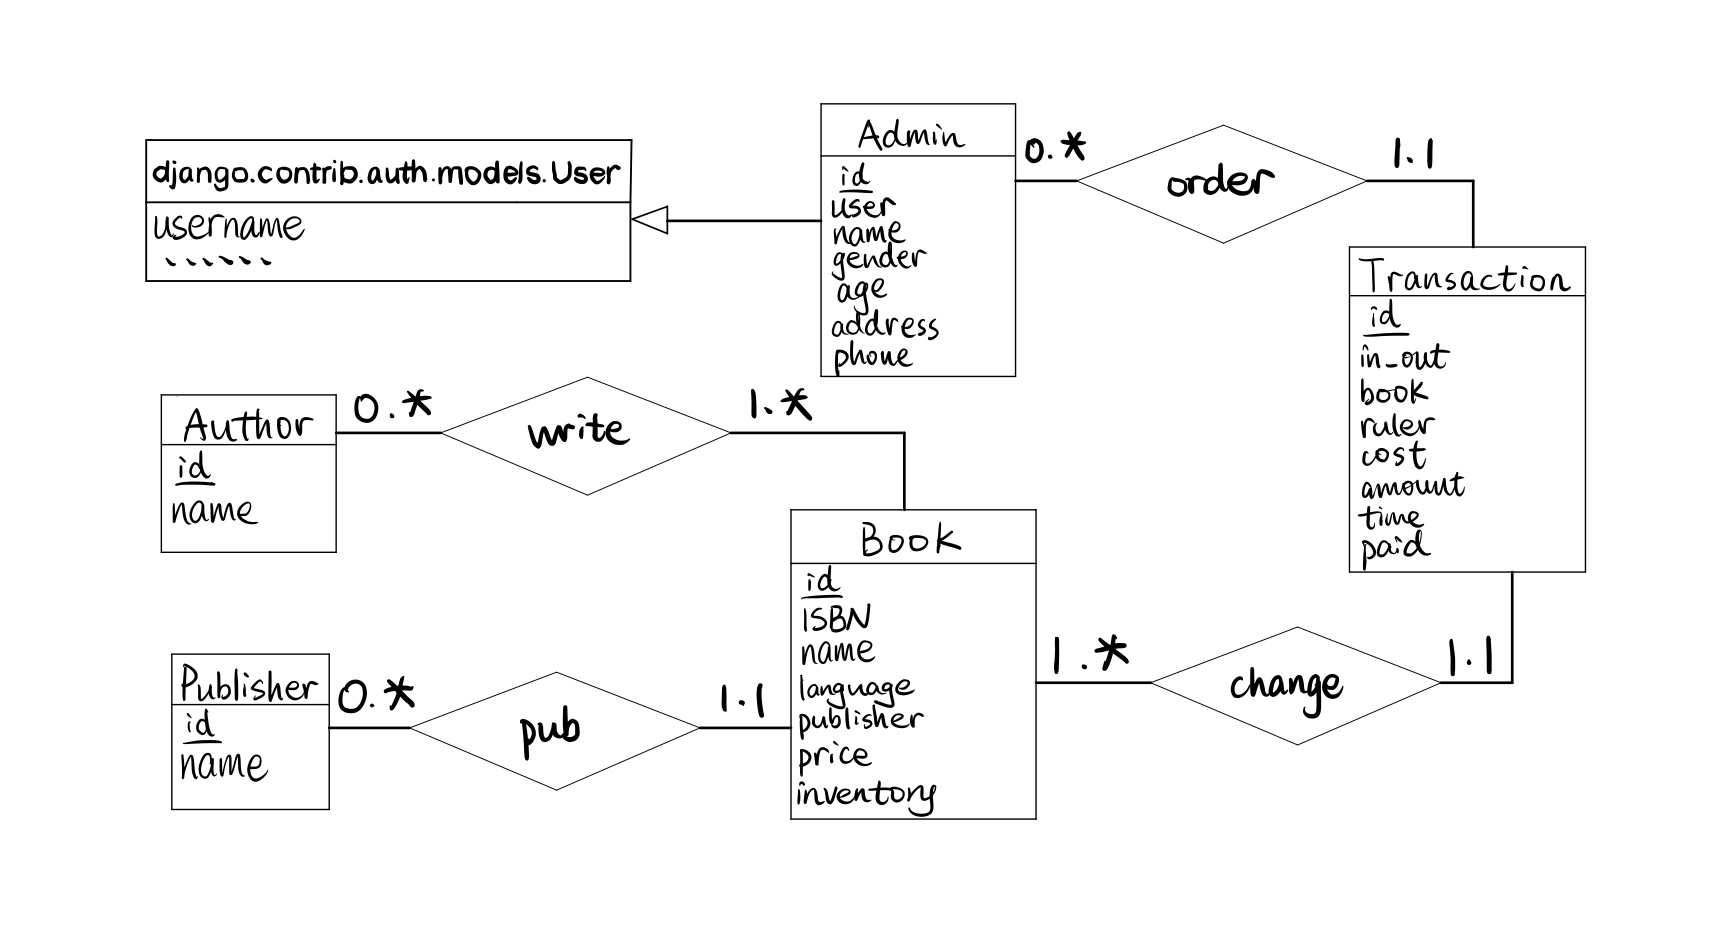 django.contrib.auth.models.User
username
、、、、、、
Admin
id
user
name
gender
age
address
phone
0.*
order
1.1
Transaction
id
in_out
book
ruler
cost
amount
time
paid
Author
id
name
0.*
write
1.*
Book
id
ISBN
name
language
publisher
price
inventory
Publisher
id
name
0.*
pub
1.1
1.*
change
1.1